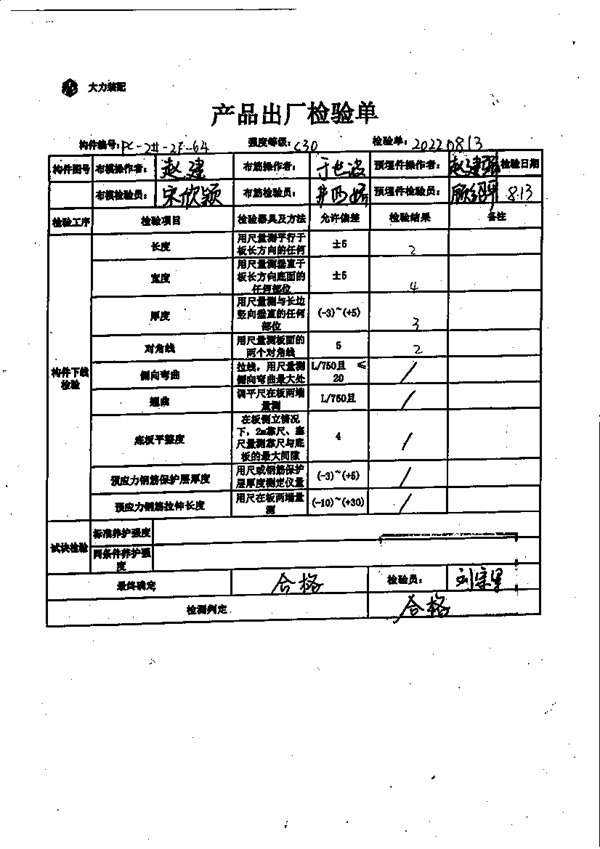 大力装配
产品出厂检验单
构件编号: PC-2#-2F-64 强度等级: C30 检验单: 20220813
构件图号 布模操作者: 赵建 布筋操作者: 预埋件操作者: 赵建强 检验日期
布模检验员: 宋欣颖 布筋检验员: 预埋件检验员: 8.13
检验工序 检验项目 检验器具及方法 允许偏差 检验结果 备注
构件下线检验
长度 用尺量测平行于板长方向的任何 ±5 2
宽度 用尺量测垂直于板长方向底面的任何部位 ±5 4
厚度 用尺量测与长边竖向垂直的任何部位 (-3)~(+5) 3
对角线 用尺量测板面的两个对角线 5 2
侧向弯曲 拉线,用尺量测侧向弯曲最大处 L/750且 ≤20 /
翘曲 调平尺在板两端量测 L/750且 /
底板平整度 在板侧立情况下,2m靠尺、塞尺量测靠尺与底板的最大间隙 4 /
预应力钢筋保护层厚度 用尺或钢筋保护层厚度测定仪量 (-3)~(+5) /
预应力钢筋拉伸长度 用尺在板两端量测 (-10)~(+30) /
试块检验 标准养护强度
同条件养护强度
最终确定 合格 检验员:
检测判定 合格